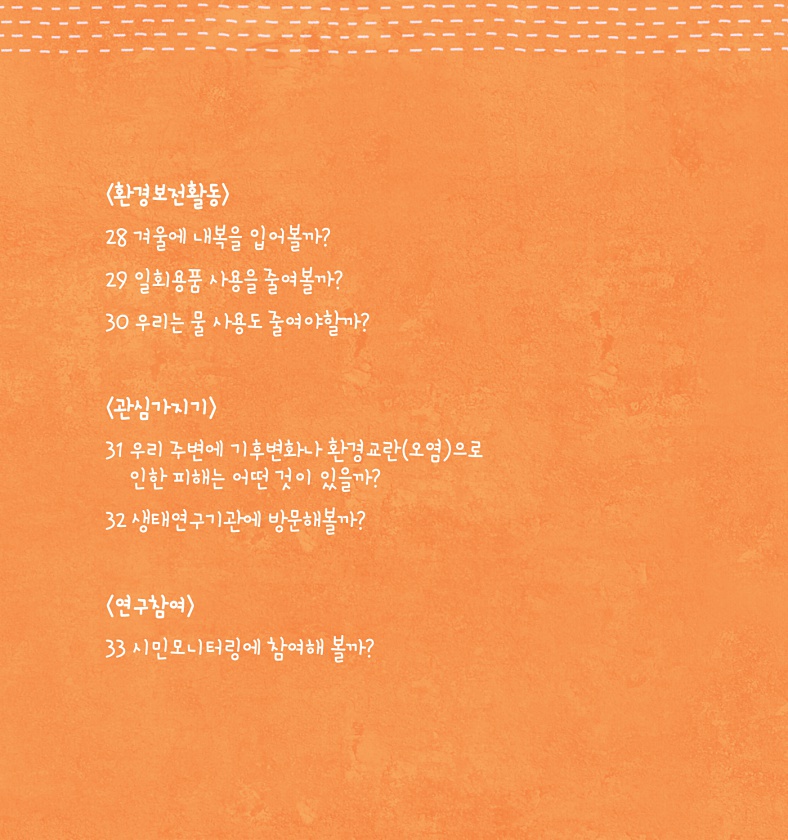 <환경보전활동>
28 겨울에 내복을 입어볼까?
29 일회용품 사용을 줄여볼까?
30 우리는 물 사용도 줄여야할까?
<관심가지기>
31 우리 주변에 기후변화나 환경교란(오염)으로
인한 피해는 어떤 것이 있을까?
32 생태연구기관에 방문해볼까?
<연구참여>
33 시민모니터링에 참여해 볼까?